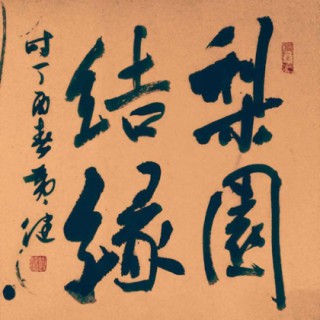 梨園
結緣
时丁酉春黄健